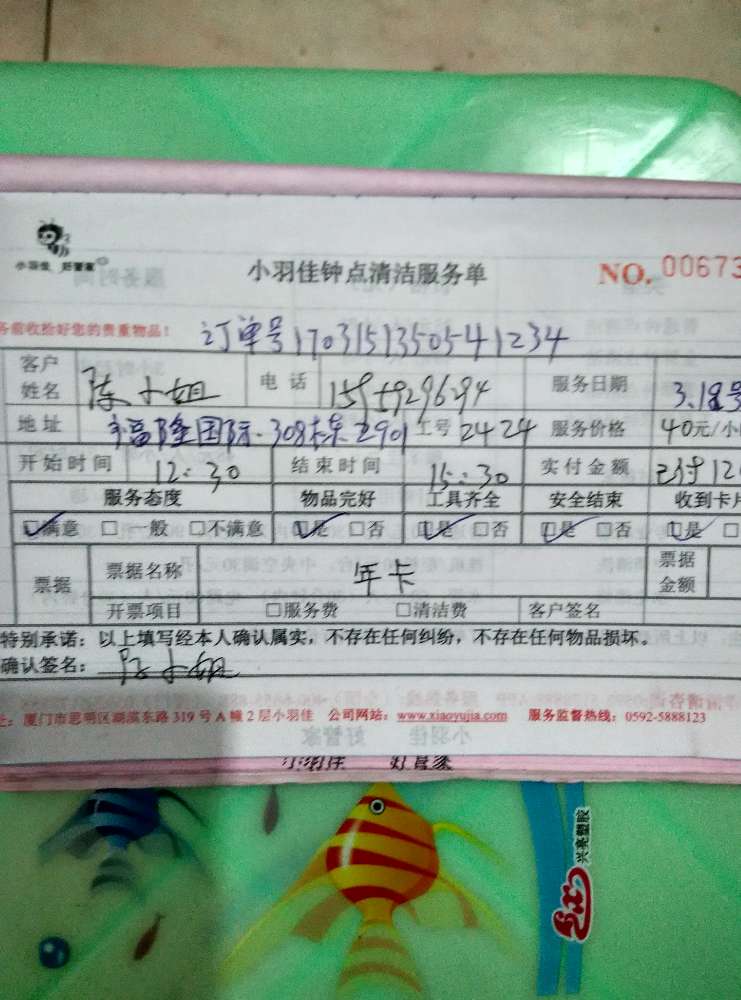 小羽佳 好管家
小羽佳钟点清洁服务单 NO. 00673
务前收拾好您的贵重物品! 订单号17031513505411234
客户姓名 陈小姐 电话 15959296294 服务日期 3.18号
地址 福隆国际·308栋2901 工号 2424 服务价格 40元/小
开始时间 12:30 结束时间 15:30 实付金额 已付12
服务态度 物品完好 工具齐全 安全结束 收到卡片
☑满意 □一般 □不满意 ☑是 □否 ☑是 □否 ☑是 □否 ☑是 □
票据 票据名称 年卡 票据金额
开票项目 □服务费 □清洁费 客户签名
特别承诺:以上填写经本人确认属实,不存在任何纠纷,不存在任何物品损坏。
确认签名: 陈小姐
址:厦门市思明区湖滨东路319号A幢2层小羽佳 公司网站:www.xiaoyujia.com 服务监督热线:0592-5888123
小羽佳 好管家
兴亮塑胶